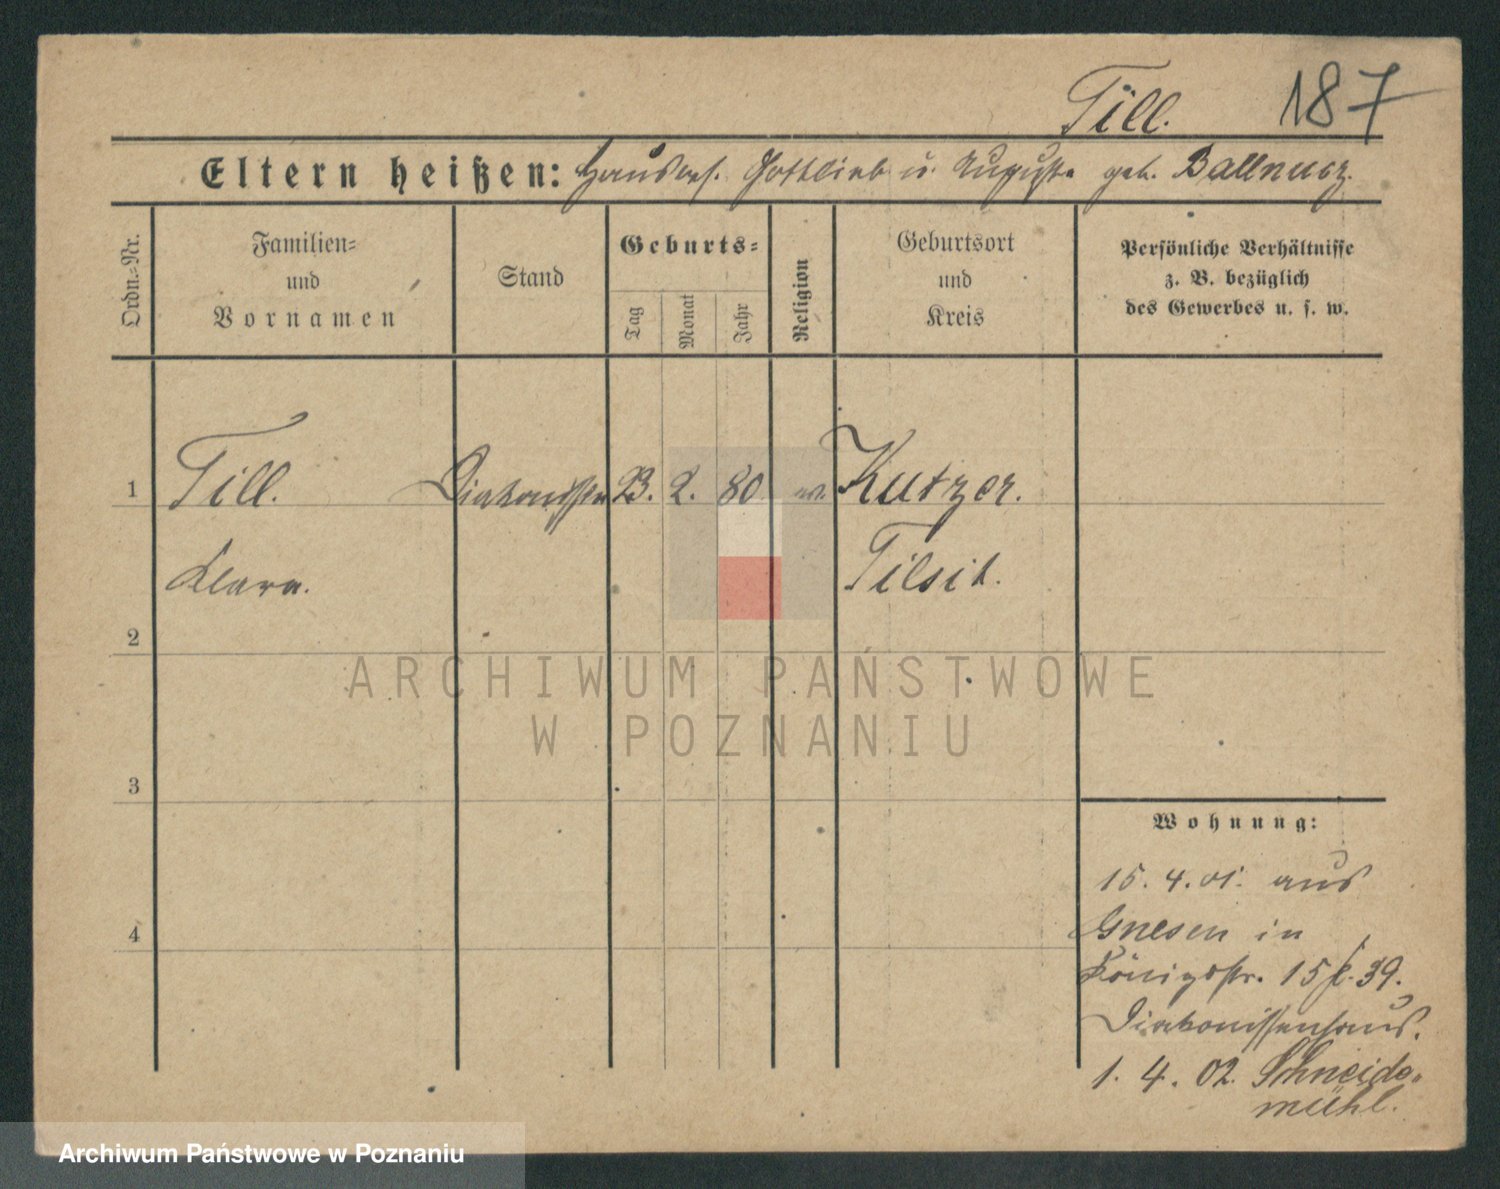 Till. 187
Eltern heißen: Gottlieb u. Auguste geb. Ballnusz.
Ordn.-Nr.
Familien-
und
Vornamen
Stand
Geburts-
Tag
Monat
Jahr
Religion
Geburtsort
und
Kreis
Persönliche Verhältnisse
z. B. bezüglich
des Gewerbes u. s. w.
1 Till. Diakonisse 23. 2. 80 ev. Kutzer.
Klara. Tilsit.
2
ARCHIWUM PAŃSTWOWE
W POZNANIU
3
Wohnung:
4
15. 4. 01. aus
Gnesen in
Königstr. 15 39.
Diakonissenhaus.
1. 4. 02. Schneide-
mühl.
Archiwum Państwowe w Poznaniu